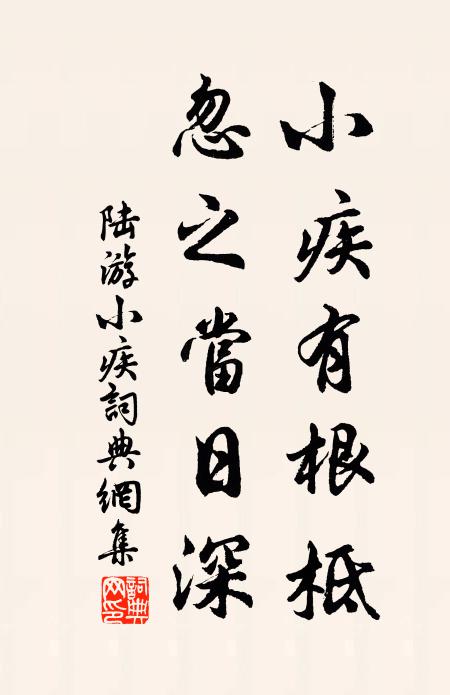 小疾有根柢
忽之當日深
陆游小疾詞典網集
詞典網印